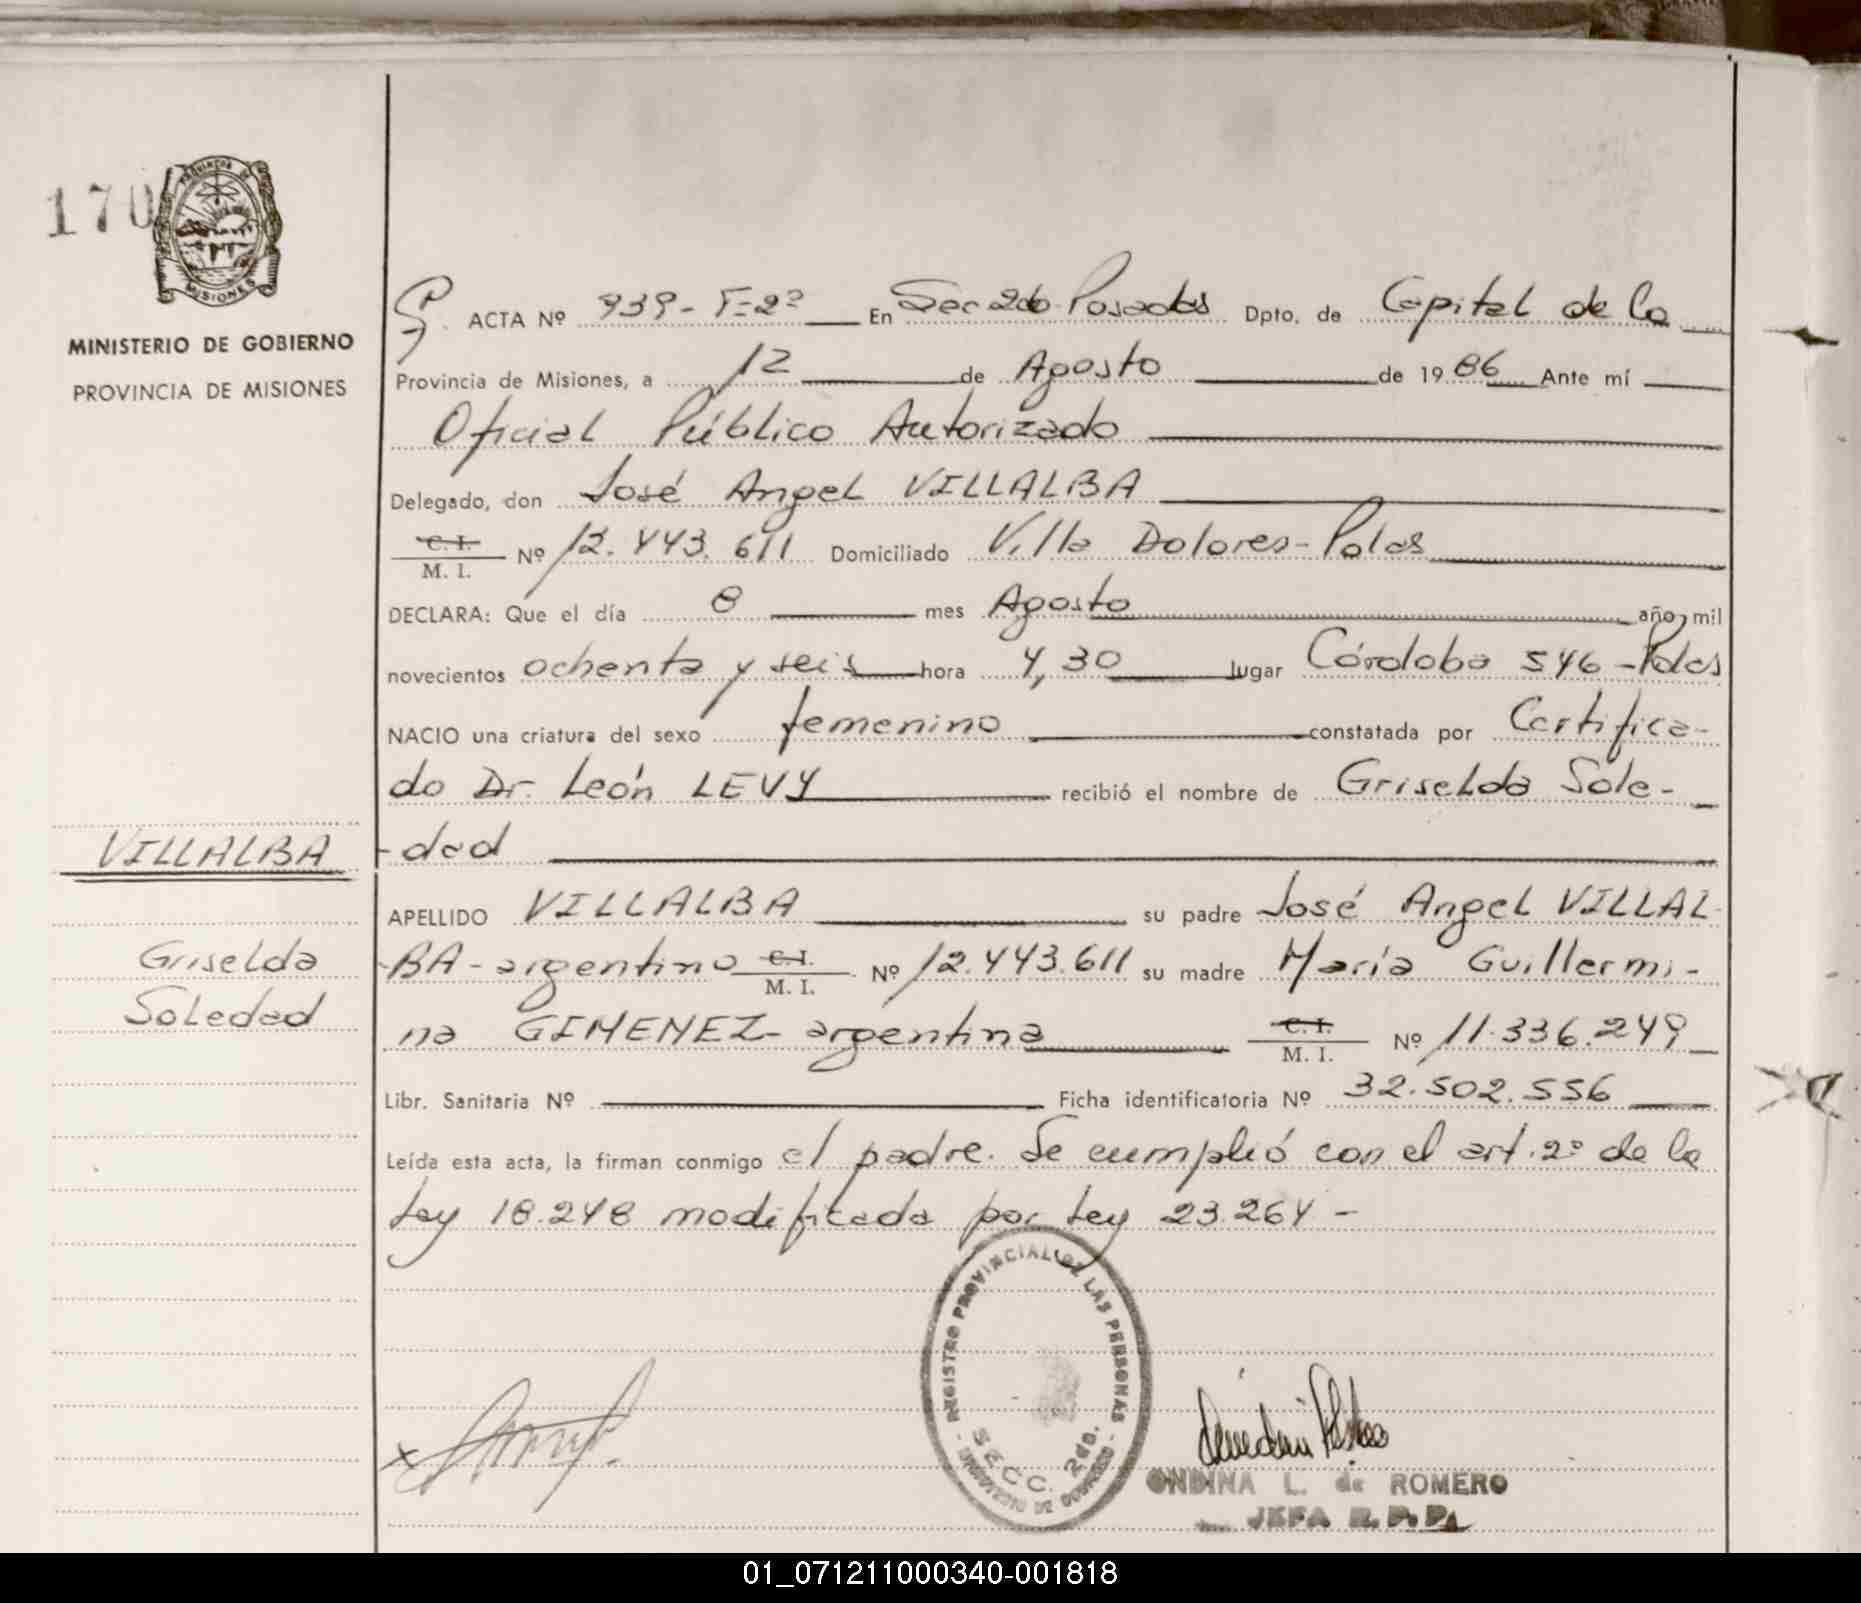 170
PROVINCIA DE
MISIONES
MINISTERIO DE GOBIERNO
PROVINCIA DE MISIONES
ACTA Nº 939 - T=2º En Sec 2do Posadas Dpto. de Capital de la
Provincia de Misiones, a 12 de Agosto de 1986 Ante mí
Oficial Público Autorizado
Delegado, don José Angel VILLALBA
C. I.
M. I. Nº 12.443.611 Domiciliado Villa Dolores - Pdas
DECLARA: Que el día 8 mes Agosto año mil
novecientos ochenta y seis hora 4,30 lugar Córdoba 546 - Pdas
NACIO una criatura del sexo femenino constatada por Certifica-
do Dr. León LEVY recibió el nombre de Griselda Sole-
VILLALBA
-dad
APELLIDO VILLALBA su padre José Angel VILLAL-
Griselda
-BA - argentino C. I. M. I. Nº 12.443.611 su madre María Guillermi-
Soledad
na GIMENEZ - argentina C. I. M. I. Nº 11.336.249
Libr. Sanitaria Nº Ficha identificatoria Nº 32.502.556
Leída esta acta, la firman conmigo el padre. Se cumplió con el art. 2º de la
Ley 18.248 modificada por Ley 23.264 -
REGISTRO PROVINCIAL DE LAS PERSONAS
SECC. 2da.
- MINISTERIO DE GOBIERNO -
ONDINA L. de ROMERO
JEFA R. P. P.
01_071211000340-001818